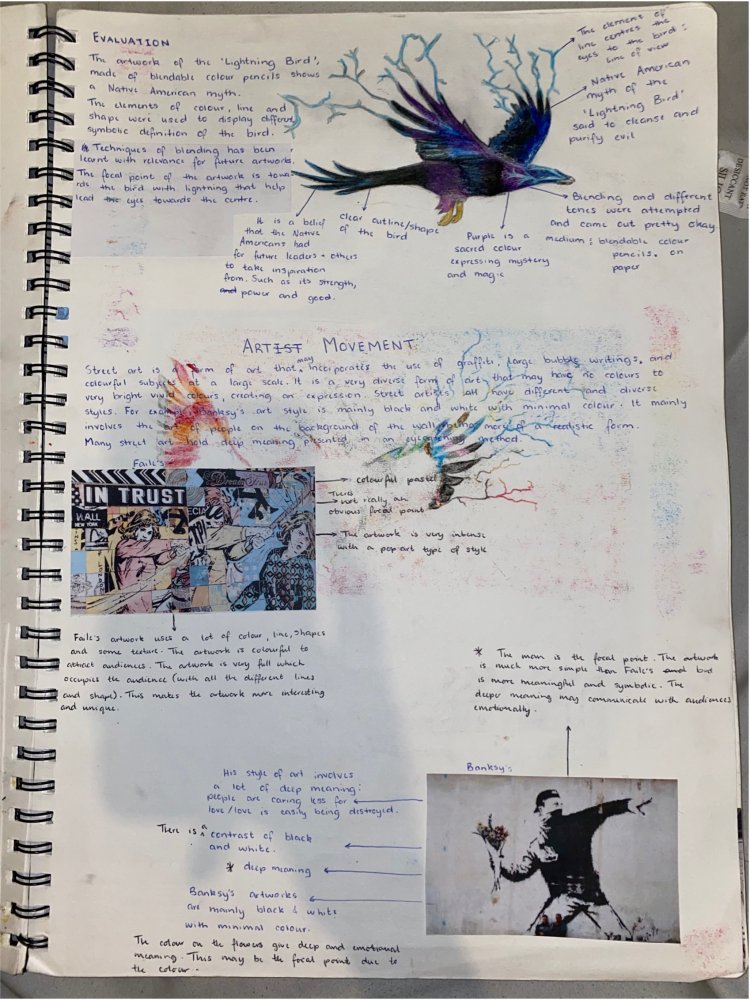 EVALUATION
The artwork of the 'Lightning Bird',
made of blendable colour pencils shows
a Native American myth.
The elements of colour, line and
shape were used to display different
symbolic definition of the bird.
Techniques of blending has been
learnt with relevance for future artworks.
The focal point of the artwork is towa-
rds the bird with lightning that help
lead the eyes towards the centre.
The element of
line centres the
eyes to the bird :
line of view
Native American
myth of the
'Lightning Bird'
said to cleanse and
purify evil
Blending and different
tones were attempted
and came out pretty okay.
medium : blendable colour
pencils. on
paper
It is a belief
that the Native
Americans had
for future leaders + others
to take inspiration
from. Such as its strength,
and power and good.
clear outline/shape
of the bird
Purple is a
sacred colour
expressing mystery
and magic
DESICCANT
ARTIST MOVEMENT
Street art is a form of art that may incorporates the use of graffiti, large bubble writings, and
colourful subjects at a large scale. It is a very diverse form of art that may have no colours to
very bright vivid colours, creating an expression. Street artists all have different and diverse
styles. For example, Banksy's art style is mainly black and white with minimal colour. It mainly
involves the people on the background of the wall, being more of a realistic form.
Many street art hold deep meaning presented in an method.
Faile's
IN TRUST
WALL
NEW YORK
colourful pastel
There's
not really an
obvious focal point
The artwork is very intense
with a pop art type of style
Faile's artwork uses a lot of colour, line, shapes
and some texture. The artwork is colourful to
attract audiences. The artwork is very full which
occupies the audience (with all the different lines
and shape). This makes the artwork more interesting
and unique.
* The man is the focal point. The artwork
is much more simple than Faile's and but
is more meaningful and symbolic. The
deeper meaning may communicate with audiences
emotionally.
Banksy's
His style of art involves
a lot of deep meaning:
people are caring less for
love/love is easily being destroyed.
There is a contrast of black
and white.
* deep meaning
Banksy's artworks
are mainly black & white
with minimal colour.
The colour on the flowers give deep and emotional
meaning. This may be the focal point due to
the colour.